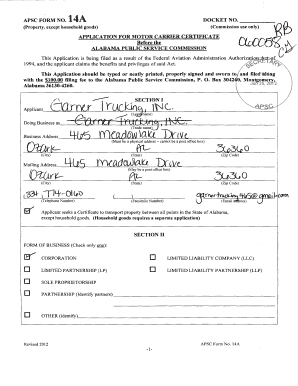 APSC FORM NO. 14A
(Property, except household goods)
DOCKET NO.
(Commission use only)
APPLICATION FOR MOTOR CARRIER CERTIFICATE
Before the
ALABAMA PUBLIC SERVICE COMMISSION
This Application is being filed as a result of the Federal Aviation Administration Authorization Act of
1994, and the applicant claims the benefits and privileges of said Act.
This Application should be typed or neatly printed, properly signed and sworn to, and filed along
with the $100.00 filing fee to the Alabama Public Service Commission, P. O. Box 304260, Montgomery,
Alabama 36130-4260.
SECRETARY
APSC
SECTION I
Applicant Garner Trucking, INC.
Doing Business as Garner Trucking, INC.
(Trade name)
Business Address 465 Meadowlake Drive
(Must be a physical address - cannot be a post office box)
Ozark AL 36360
(City) (State) (Zip Code)
Mailing Address 465 Meadowlake Drive
(May be a post office box)
Ozark AL 36360
(City) (State) (Zip Code)
334 774-0160 garnertrucking46500@gmail.com
(Telephone Number) (Facsimile Number) (Email address)
Applicant seeks a Certificate to transport property between all points in the State of Alabama,
except household goods. (Household goods requires a separate application)
SECTION II
FORM OF BUSINESS (Check only one):
CORPORATION LIMITED LIABILITY COMPANY (LLC)
LIMITED PARTNERSHIP (LP) LIMITED LIABILITY PARTNERSHIP (LLP)
SOLE PROPRIETORSHIP
PARTNERSHIP (Identify partners)
OTHER (Identify)
Revised 2012
-1-
APSC Form No. 14A